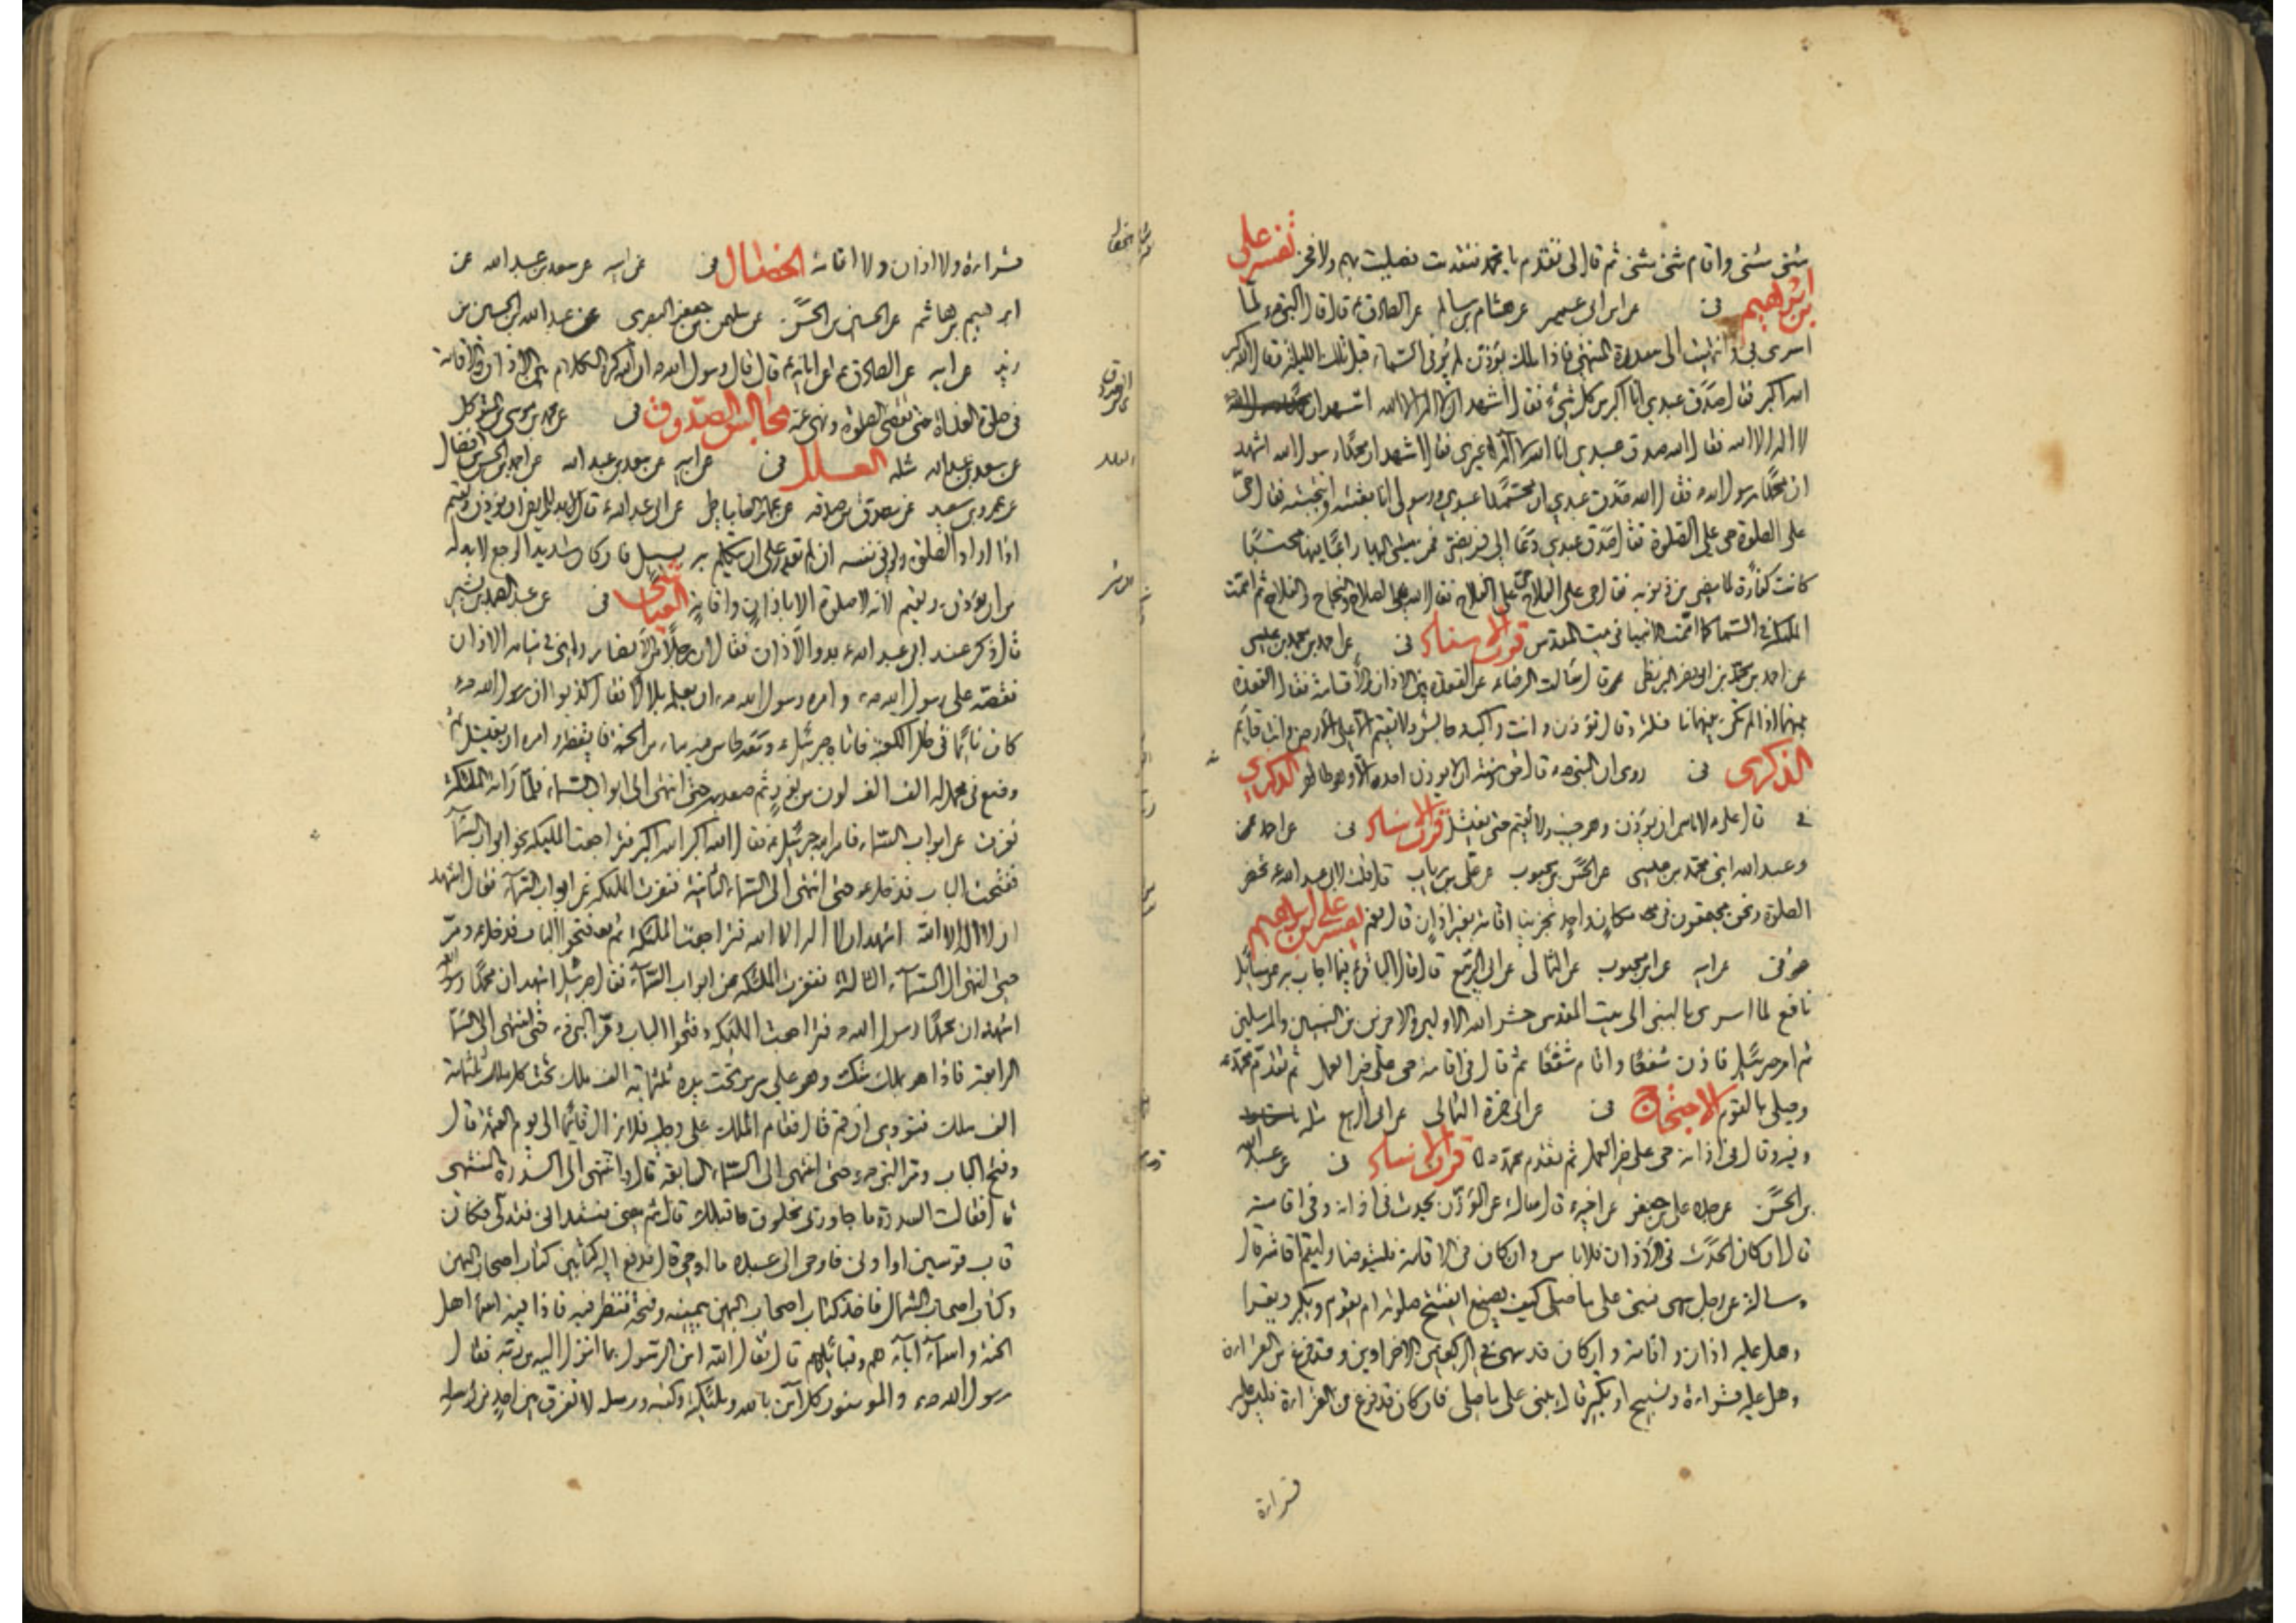 مثنى مثنى واقام مثنى مثنى ثم قال لى تقدم يا محمد فتقدمت فصليت بهم ولا فخر تفسير على
بن ابراهيم فى عن ابن ابى عمير عن هشام بن سالم عن الصادق ع قال قال النبى ص لما
اسرى بى وانتهيت الى سدرة المنتهى فاذا ملك يؤذن لم ير فى السماء قبل تلك الليلة فقال الله اكبر
الله اكبر فقال صدق عبدى انا اكبر من كل شئ فقال اشهد ان لا اله الا الله اشهد ان
لا اله الا الله فقال الله صدق عبدى انا الله لا اله غيرى فقال اشهد ان محمدا رسول الله اشهد
ان محمدا رسول الله فقال الله صدق عبدى ان محمدا عبدى ورسولى انا بعثته وانتجبته فقال حى
على الصلوة حى على الصلوة فقال صدق عبدى دعا الى فريضتى فمن مشى اليها راغبا فيها محتسبا
كانت كفارة لما مضى من ذنوبه فقال حى على الفلاح حى على الفلاح فقال الله هى الصلاح والنجاح والفلاح ثم اممت
الملئكة فى السماء كما اممت الانبياء فى بيت المقدس قرب الاسناد فى عن احمد بن محمد بن عيسى
عن احمد بن محمد بن ابى نصر البزنطى قال سالت الرضا ع عن القعدة بين الاذان والاقامة فقال القعدة
بينهما اذا لم تكن بينهما نافلة وقال تؤذن وانت راكب وجالس ولا تقيم الا على الارض وانت قائم
الذكرى فى روى ان النبى ص قال حق وسنة ان لا يؤذن احد الا وهو طاهر الذكرى
فى قال على ع لا باس ان يؤذن وهو جنب ولا يقيم حتى يغتسل قرب الاسناد فى عن احمد
وعبد الله ابنى محمد بن عيسى عن الحسن بن محبوب عن على بن رياب قال قلت لابى عبد الله ع تحضر
الصلوة ونحن مجتمعون فى مكان واحد تجزينا اقامة بغير اذان قال نعم تفسير على بن ابراهيم
فى عن ابيه عن ابن محبوب عن الثمالى عن ابى الربيع قال قال الباقر ع فيما اجاب به عن مسائل
نافع لما اسرى بالنبى الى بيت المقدس حشر الله الاولين والاخرين من النبيين والمرسلين
ثم امر جبرئيل فاذن شفعا واقام شفعا ثم قال فى اقامته حى على خير العمل ثم تقدم محمد ص
وصلى بالقوم الاحتجاج فى عن ابى حمزة الثمالى عن ابى الربيع مثله
وفيه وقال فى اذانه حى على خير العمل ثم تقدم محمد قرب الاسناد فى عن عبد الله
بن الحسن عن جده على بن جعفر عن اخيه ع قال سالته عن المؤذن يحدث فى اذانه وفى اقامته
قال ان كان الحدث فى الاذان فلا باس وان كان فى الاقامة فليتوضأ وليقم اقامته قال
وسالته عن رجل سهى فبنى على ما صلى كيف يصنع ايفتتح صلوته ام يقوم ويكبر ويقرا
وهل عليه اذان واقامة وان كان قد سهى فى الركعتين الاخراوين وقد فرغ من القراءة
وهل عليه قراءة وتسبيح او تكبير قال يبنى على ما صلى فان كان قد فرغ من القراءة فليس عليه
قراءة
قراءة ولا اذان ولا اقامة الخصال فى عن ابيه عن سعد بن عبد الله عن
ابراهيم بن هاشم عن الحسين بن الحسن عن سليمن بن جعفر البصرى عن عبد الله بن الحسين بن
زيد عن ابيه عن الصادق ع عن ابائه ع قال قال رسول الله ص ان الله كره الكلام بين الاذان والاقامة
فى صلوة الغداة حتى تقضى الصلوة ونهى عنه مجالس الصدوق فى عن محمد بن موسى بن المتوكل
عن سعد بن عبد الله مثله العلل فى عن ابيه عن سعد بن عبد الله عن احمد بن الحسن بن فضال
عن عمرو بن سعيد عن مصدق بن صدقه عن عمار الساباطى عن ابى عبد الله ع قال لا بد للمريض ان يؤذن ويقيم
اذا اراد الصلوة ولو فى نفسه ان لم يقدر على ان يتكلم به بسبيل فان كان شديد الوجع لا بد له
من ان يؤذن ويقيم لانه لا صلوة الا باذان واقامة العياشى فى عن عبد الصمد بن بشير
قال ذكر عند ابى عبد الله ع بدو الاذان فقال ان رجلا من الانصار راى فى منامه الاذان
فقصه على رسول الله ص وامره رسول الله ص ان يعلمه بلالا فقال كذبوا ان رسول الله ص
كان نائما فى ظل الكعبة فاتاه جبرئيل ع ومعه طاس فيه ماء من الجنة فايقظه وامره ان يغتسل ثم
وضع فى محمل له الف الف لون من نور ثم صعد به حتى انتهى الى ابواب السماء فلما راته الملئكة
نفرت عن ابواب السماء فامر الله جبرئيل ع فقال الله اكبر الله اكبر فتراجعت الملئكة نحو ابواب السماء
ففتحت الباب فدخل ع حتى انتهى الى السماء الثانية فنفرت الملئكة عن ابواب السماء فقال اشهد
ان لا اله الا الله اشهد ان لا اله الا الله فتراجعت الملئكة ثم فتحوا الباب فدخل ع ومر
حتى انتهى الى السماء الثالثة فنفرت الملئكة عن ابواب السماء فقال جبرئيل اشهد ان محمدا رسول الله
اشهد ان محمدا رسول الله ص فتراجعت الملئكة وفتحوا الباب ومر النبى ص حتى انتهى الى السماء
الرابعة فاذا هو بملك متك وهو على سرير تحت يده ثلثمائة الف ملك تحت كل ملك ثلثمائة
الف ملك فنودى ان قم قال فقام الملك على رجليه فلا يزال قائما الى يوم القيمة قال
وفتح الباب ومر النبى ص حتى انتهى الى السماء السابعة قال وانتهى الى السدرة المنتهى
قال فقالت السدرة ما جاوزنى مخلوق قبلك قال ثم مضى فتدانى فتدلى فكان
قاب قوسين او ادنى فاوحى الى عبده ما اوحى قال فدفع اليه كتابين كتاب اصحاب اليمين
وكتاب اصحاب الشمال فاخذ كتاب اصحاب اليمين بيمينه وفتحه فنظر فيه فاذا فيه اسماء اهل
الجنة واسماء آبائهم وقبائلهم قال فقال الله امن الرسول بما انزل اليه من ربه فقال
رسول الله ص والمؤمنون كل آمن بالله وملئكته وكتبه ورسله لا نفرق بين احد من رسله